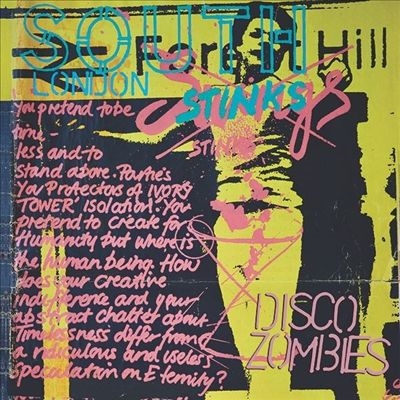 SOUTH
Forest Hill
LONDON
STINKS
STINKS
You pretend to be
time -
less and to
stand above. Parties
You Protectors of IVORY
TOWER' isolation. You
pretend to create for
Humanity but where is
the human being. How
does your creative
indifference and your
abstract chatter about
Timelessness differ from
a ridiculous and useless
Speculation on Eternity?
DISCO
ZOMBIES